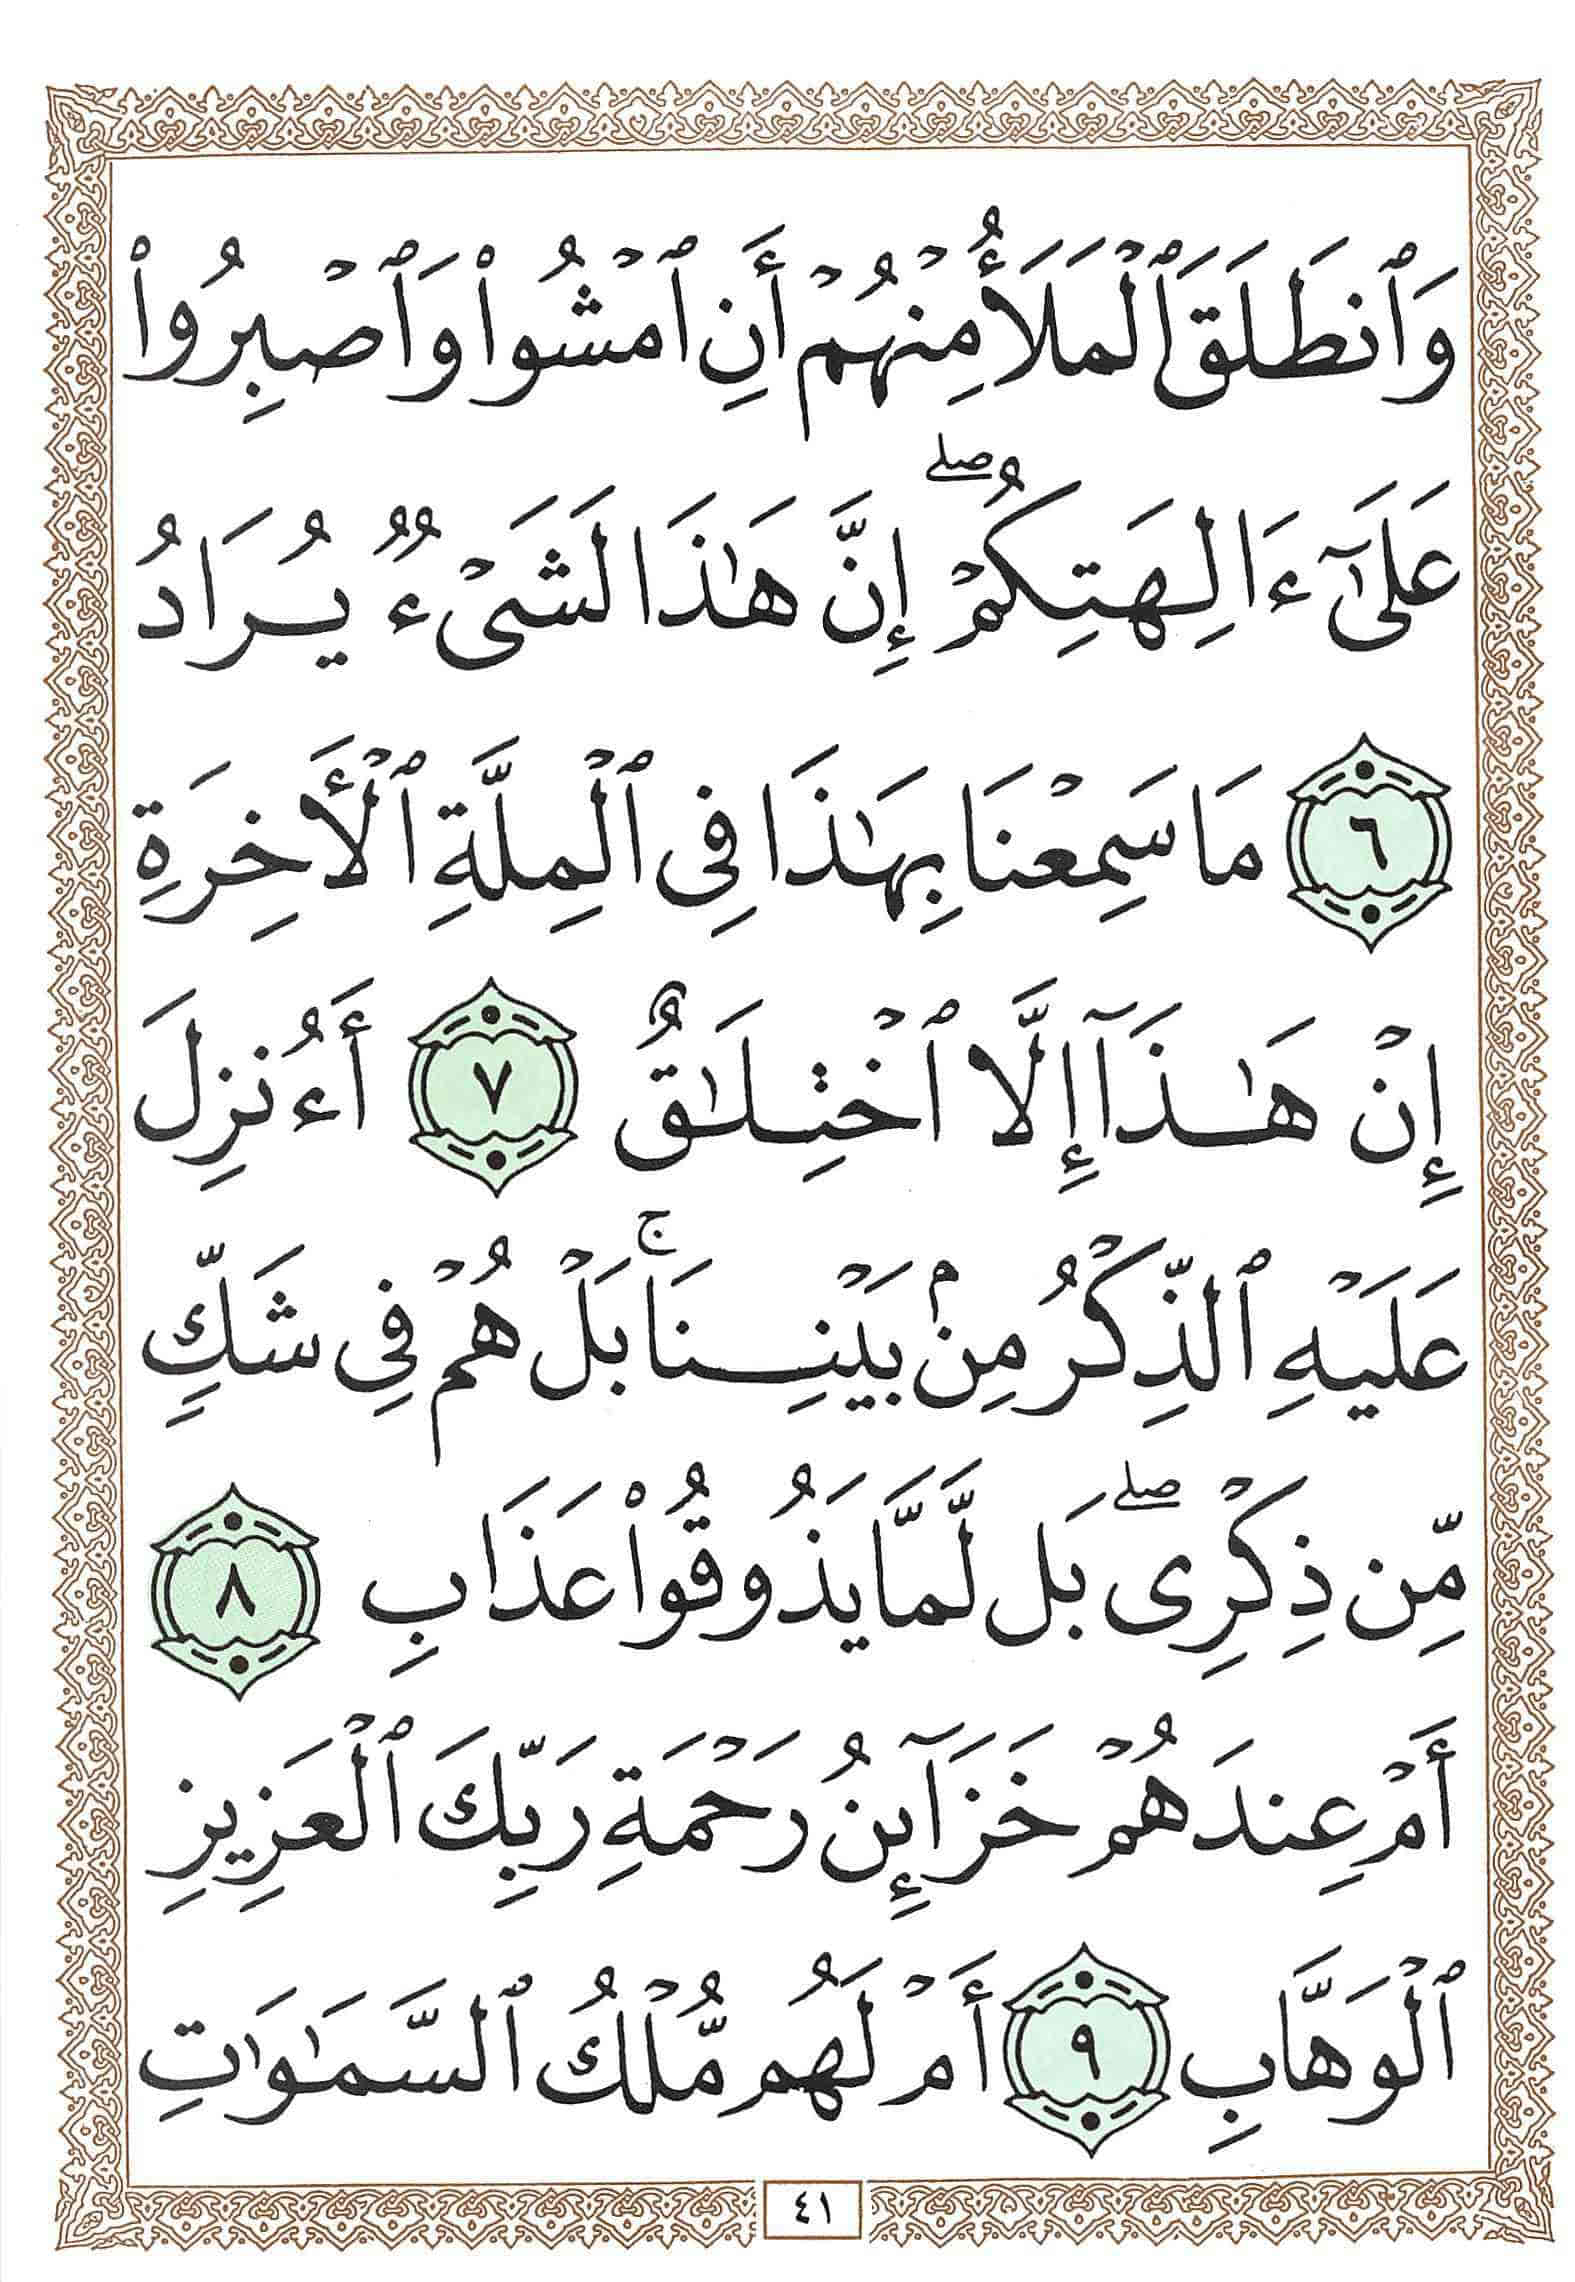 وَٱنطَلَقَ ٱلْمَلَأُ مِنْهُمْ أَنِ ٱمْشُوا۟ وَٱصْبِرُوا۟
عَلَىٰٓ ءَالِهَتِكُمْ ۖ إِنَّ هَـٰذَا لَشَىْءٌ يُرَادُ
٦ مَا سَمِعْنَا بِهَـٰذَا فِى ٱلْمِلَّةِ ٱلْأَخِرَةِ
إِنْ هَـٰذَآ إِلَّا ٱخْتِلَـٰقٌ ٧ أَءُنزِلَ
عَلَيْهِ ٱلذِّكْرُ مِنۢ بَيْنِنَا ۚ بَلْ هُمْ فِى شَكٍّ
مِّن ذِكْرِى ۖ بَل لَّمَّا يَذُوقُوا۟ عَذَابِ ٨
أَمْ عِندَهُمْ خَزَآئِنُ رَحْمَةِ رَبِّكَ ٱلْعَزِيزِ
ٱلْوَهَّابِ ٩ أَمْ لَهُم مُّلْكُ ٱلسَّمَـٰوَٰتِ
٤١